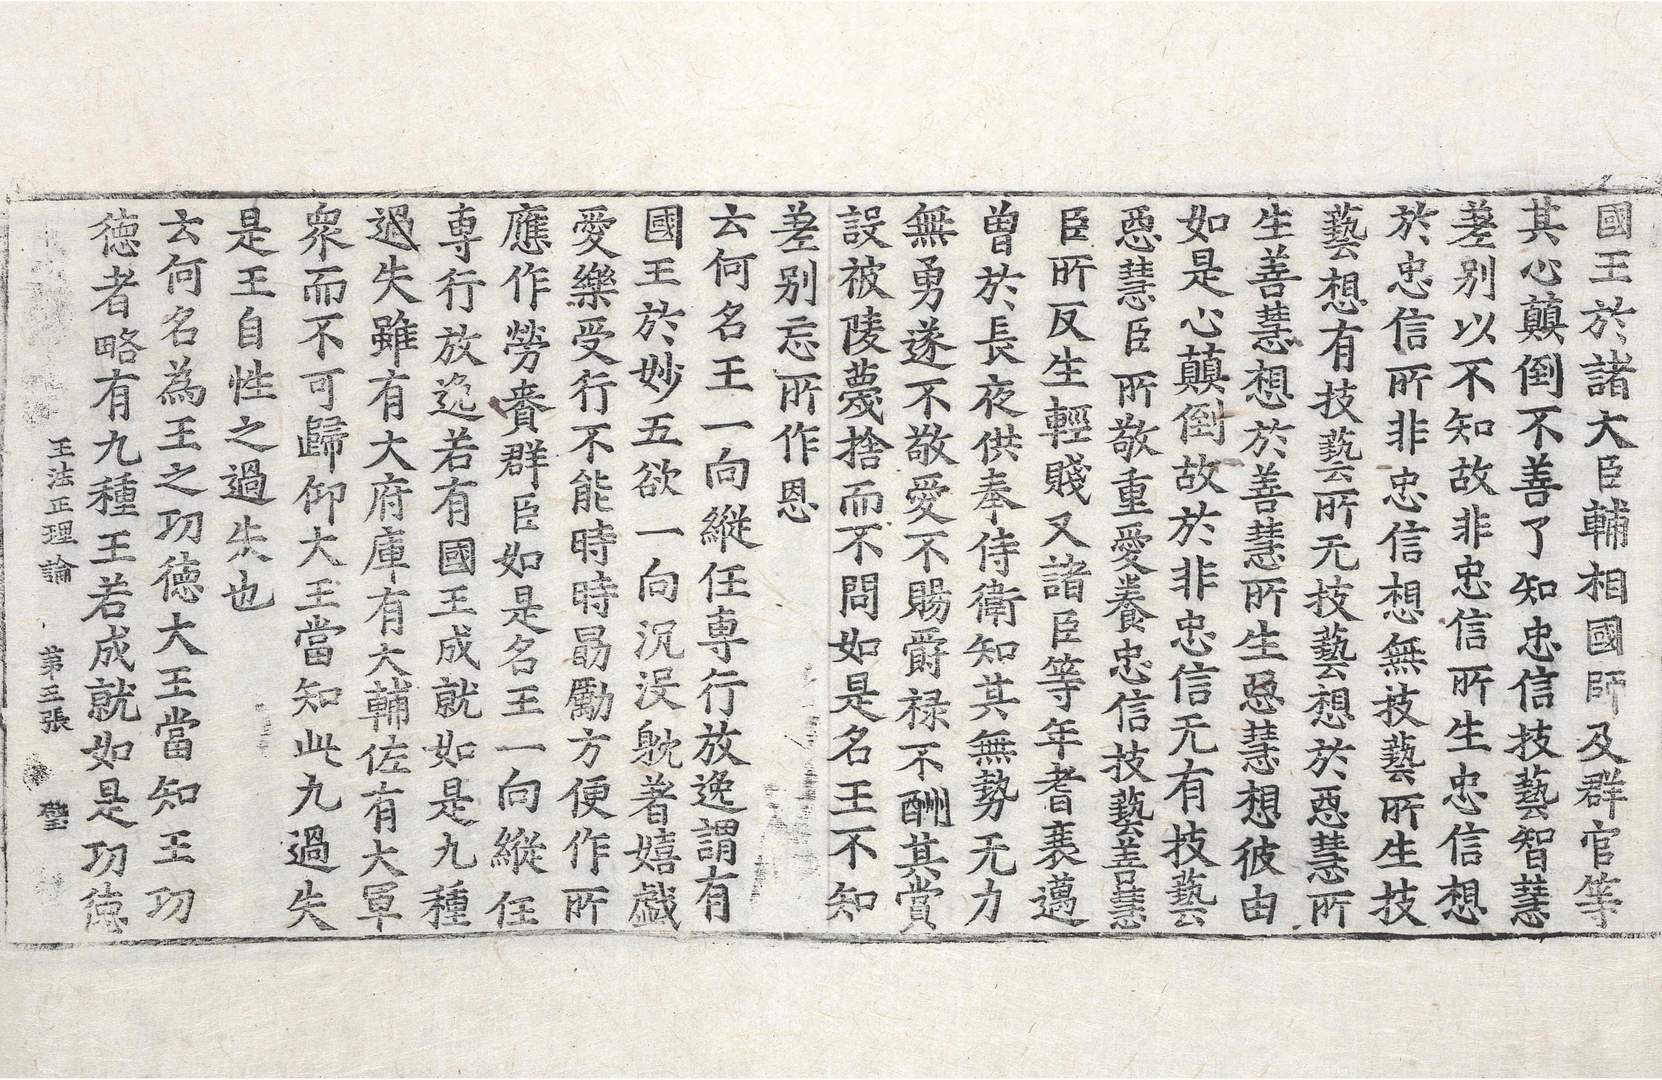 國王於諸大臣輔相國師及群官等
其心顚倒不善了知忠信技藝智慧
差别以不知故非忠信所生忠信想
於忠信所非忠信想無技藝所生技
藝想有技藝所无技藝想於惡慧所
生善慧想於善慧所生惡慧想彼由
如是心顚倒故於非忠信无有技藝
惡慧臣所敬重愛養忠信技藝善慧
臣所反生輕賤又諸臣等年耆衰邁
曾於長夜供奉侍衛知其無勢无力
無勇遂不敬愛不賜爵祿不酬其賞
設被陵蔑捨而不問如是名王不知
差别忘所作恩
云何名王一向縱任專行放逸謂有
國王於妙五欲一向沉没躭著嬉戲
愛樂受行不能時時勗勵方便作所
應作勞賚群臣如是名王一向縱任
專行放逸若有國王成就如是九種
過失雖有大府庫有大輔佐有大軍
衆而不可歸仰大王當知此九過失
是王自性之過失也
云何名為王之功德大王當知王功
德者略有九種王若成就如是功德
王法正理論 第三張 璧